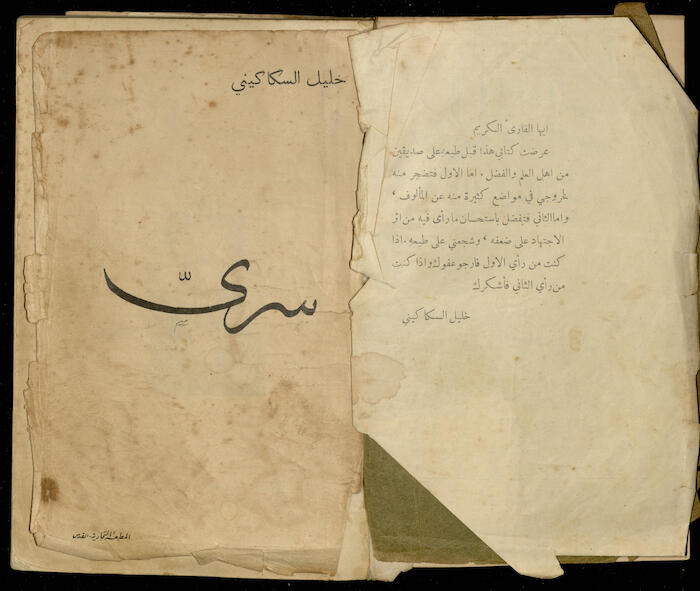 ايها القارئ الكريم
عرضت كتابي هذا قبل طبعه على صديقين
من اهل العلم والفضل. اما الاول فتضجر منه
لخروجي في مواضع كثيرة منه عن المألوف ،
واما الثاني فتفضل باستحسان ما رأى فيه من اثر
الاجتهاد على ضعفه ، وشجعني على طبعه. اذا
كنت من رأي الاول فارجو عفوك واذا كنت
من رأي الثاني فأشكرك
خليل السكاكيني
خليل السكاكيني
سرىّ
المطبعة التجارية - القدس